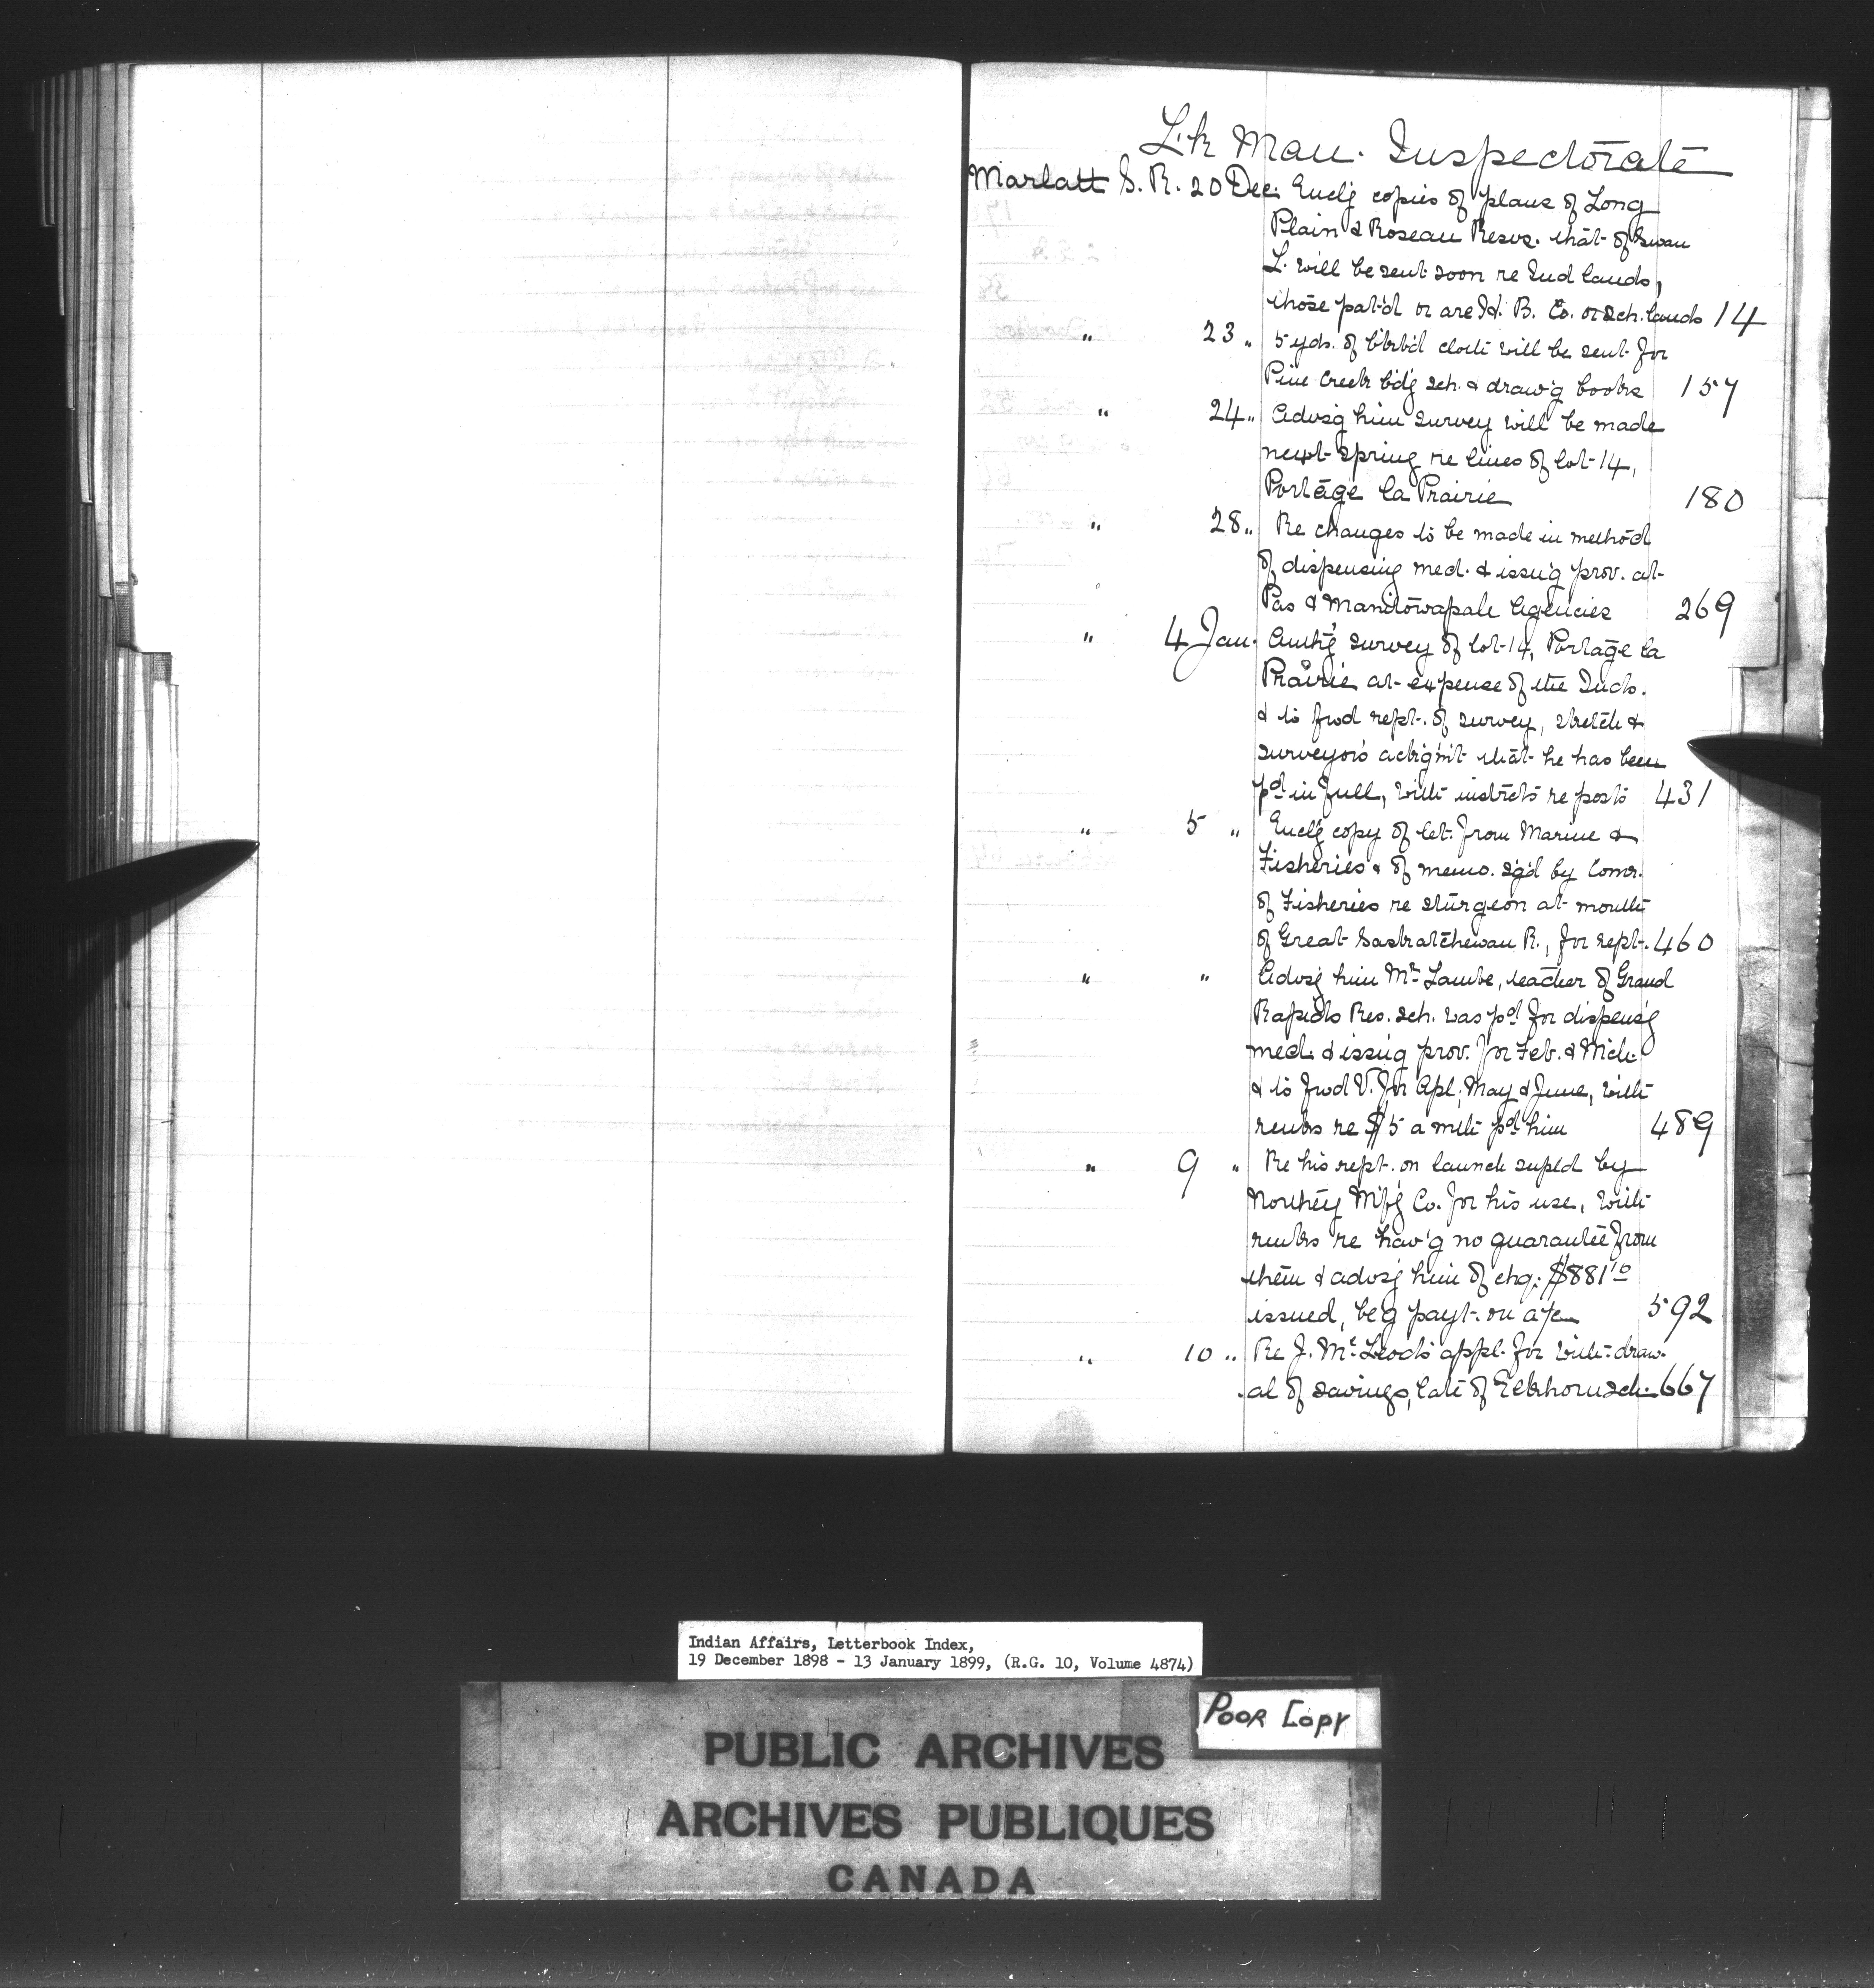 Lk Man. Inspectorate
Marlatt S. R. 20 Dec. Encl'g copies of plans of Long
Plain & Roseau Resvs. that of Swan
L. will be sent soon re Ind lands,
those pat'd or are H. B. Co. or Sch. lands 14
" 23 " 5 yds. of bl'kb'd cloth will be sent for
Pine Creek b'd'g sch. & draw'g books 157
" 24 " Advs'g him survey will be made
next spring re lines of lot 14,
Portage la Prairie 180
" 28 " Re changes to be made in method
of dispensing med. & issu'g prov. at
Pas & Manitowapah Agencies 269
" 4 Jan. Auth'g survey of lot 14, Portage la
Prairie at expense of the Inds.
& to fwd rept. of survey, sketch &
surveyor's ackg'm't that he has been
pd in full, with instrcts re posts 431
" 5 " Encl'g copy of let. from Marine &
Fisheries & of memo. sg'd by Comr.
of Fisheries re sturgeon at mouth
of Great Saskatchewan R., for rept. 460
" " Advs'g him Mr. Lambe, teacher of Grand
Rapids Res. sch. was pd for dispens'g
med. & issu'g prov. for Feb. & Mch.
& to fwd V. for Apl, May & June, with
remks re $5 a mth pd him 489
" 9 " Re his rept. on launch supl'd by
Northey M'f'g Co. for his use, with
remks re hav'g no guarantee from
them & advs'g him of chq. $881 10
issued, be'g payt. on a/c 592
" 10 " Re J. McLeod's appl. for with-draw-
al of savings, late of Elkhorn sch. 667
Indian Affairs, Letterbook Index,
19 December 1898 - 13 January 1899, (R.G. 10, Volume 4874)
POOR COPY
PUBLIC ARCHIVES
ARCHIVES PUBLIQUES
CANADA